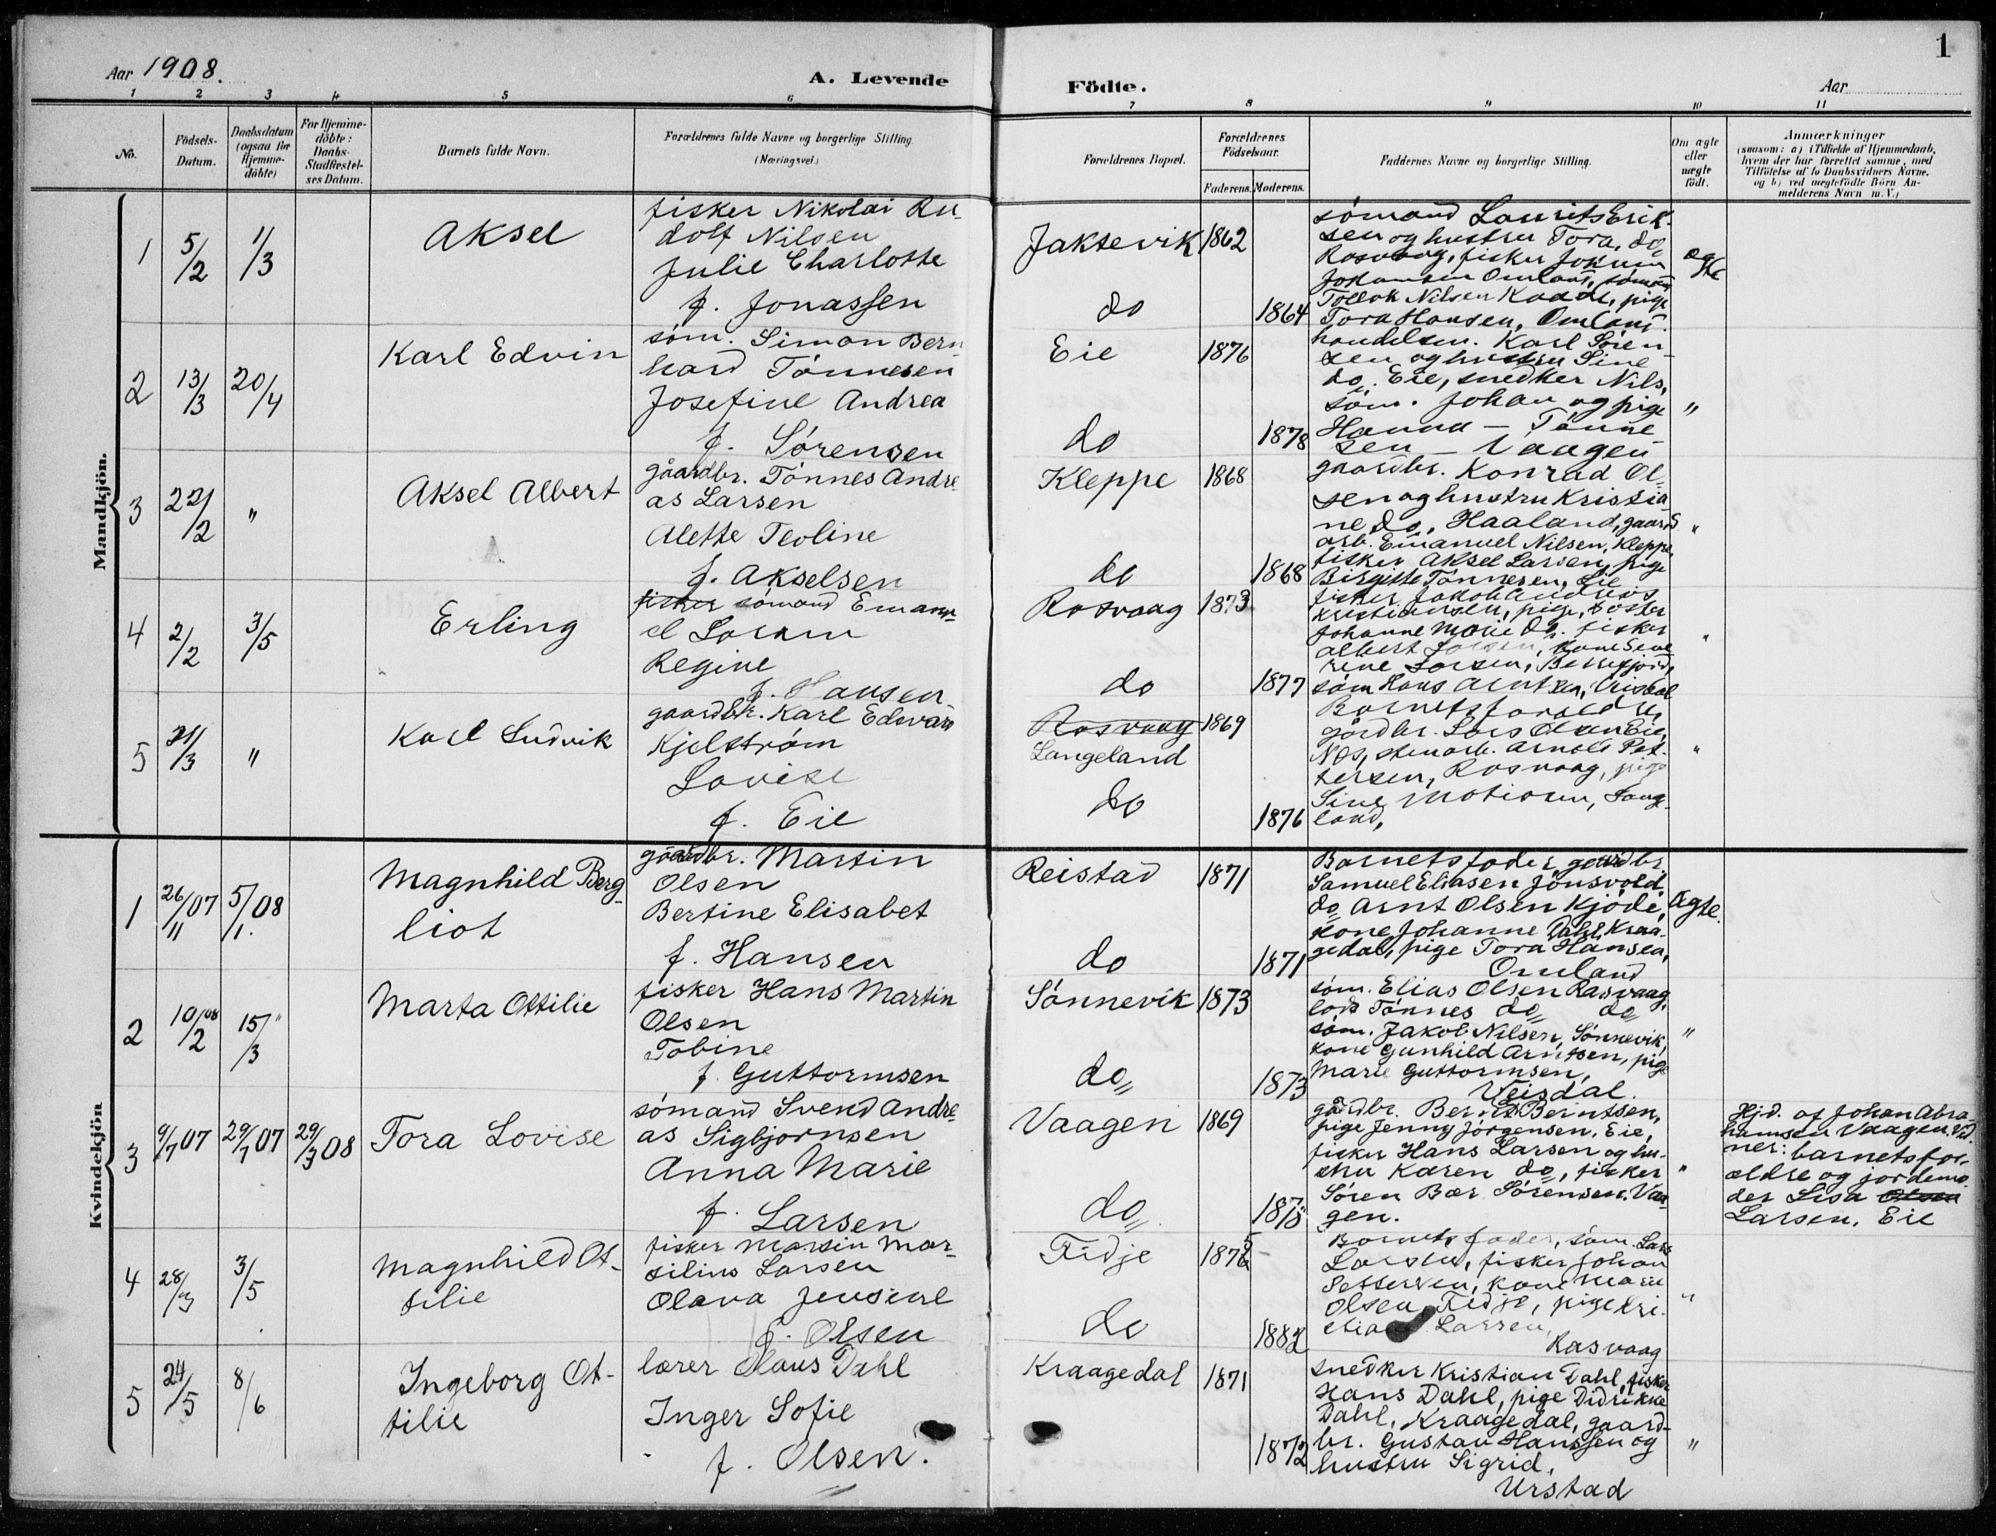 Aar 1908.
A. Levende
Födte.
Aar
1
1 2 3 4 5 6 7 8 9 10 11
No.
Födsels-
Datum.
Daabsdatum
(ogsaa for
Hjemme-
döbte)
For Hjemme-
döbte:
Daabs-
Stadfæstel-
ses Datum.
Barnets fulde Navn.
Forældrenes fulde Navne og borgerlige Stilling.
(Næringsvei.)
Forældrenes Bopæl.
Forældrenes
Födselsaar.
Faderens. Moderens.
Faddernes Navne og borgerlige Stilling.
Om ægte
eller
uægte
födt.
Anmærkninger
(saasom: a) i Tilfælde af Hjemmedaab,
hvem der har forrettet samme, med
Tilföielse af to Daabsvidners Navne,
og b) ved uægtefödte Börn An-
melderens Navn m. V.)
Mandkjön.
1
5/2
1/3
Aksel
fisker Nikolai Ru-
dolf Nilsen
Julie Charlotte
f. Jonassen
Jaktevik
do
1862
1864
sømand Laurits Erik-
sen og hustru Tora, do
Rosvaag, fisker Jokum
Johansen Omland, sømand
Tollak Nilsen, pige
Tora Hansen, Omland.
ægte
2
13/3
20/4
Karl Edvin
søm. Simon Bern
hard Tønnesen
Josefine Andrea
f. Sørensen
Eie
do
1876
1878
handelsm. Karl Søren-
sen og hustru Sine
do. Eie, snedker Nils,
søm. Johan og pige
Hanna — Tønne
sen — Vaagen
"
3
22/2
"
Aksel Albert
gaardbr. Tønnes Andre-
as Larsen
Alette Teoline
f. Akselsen
Kleppe
do
1868
1868
gaardbr. Konrad Ol-
sen og hustru Kristia
ne do, Haaland, gaards
arb. Emanuel Nilsen, Kleppe,
fisker Aksel Larsen, pige
Birgitte Tønnesen, Eie
"
4
2/2
3/5
Erling
fisker sømand Emanu-
el Larsen
Regine
f. Hansen
Rosvaag
do
1873
1877
fisker Jakob Andreas
Kristiansen, pige,
Johanne Marie do. fisker
Albert Larsen, kone Seve
rine Larsen,
søm Hans Arntsen,
"
5
21/3
"
Karl Ludvik
gaardbr. Karl Edvard
Kjelstrøm
Lovise
f. Eie
Rosvaag
Langeland
do
1869
1876
Barnets forældre,
gårdbr. Lars Olsen Eie,
Arnold Pet-
tersen, Rosvaag, pige
Sine Motisen, Lange-
land,
"
Kvindekjön
1
26/11 07
5/1. 08
Magnhild Berg-
liot
gaardbr. Martin
Olsen
Bertine Elisabet
f. Hansen
Reistad
do
1871
1871
Barnets fader, gaardbr.
Samuel Eliasen Jønsvold,
do Arnt Olsen Kjöde,
kone Johanne Dahl Kraa-
gedal, pige Tora Hansen,
Omland
ægte.
2
10/2 08
15/3 "
Marta Ottilie
fisker Hans Martin
Olsen
Tobine
f. Guttormsen
Sønnevik
do
1873
1873
søm. Elias Olsen Rasvaag,
lods Tønnes do do
søm. Jakob Nilsen, Sønnevik,
kone Gunhild Arntsen, pige
Marie Guttormsen,
Veisdal.
"
3
9/7 07
29/7 07
29/3 08
Tora Lovise
sømand Svend Andre-
as Sigbjørnsen
Anna Marie
f. Larsen
Vaagen
do
1869
1878
gårdbr. Bernt Berntsen,
pige Jenny Jørgensen, Eie,
fisker Hans Larsen og hu-
stru Karen do, fisker
Søren Bær Sørensen. Vaa
gen.
"
Hjd. af Johan Abra
hamsen Vaagen. Vid-
ner: barnets for-
ældre og jordemo-
der Lisa Olsen
Larsen. Eie
4
28/3
3/5
Magnhild Ot-
tilie
fisker Martin Mar-
silius Larsen
Olava Jensine
f. Olsen
Fidje
do
1875
1882
Barnets fader, søm. Lars
Larsen, fisker Johan
Pettersen, kone Marie
Olsen, Fidje, pige Kri-
Larsen,
Rasvaag
"
5
24/5
8/6
Ingeborg Ot-
tilie
lærer Olaus Dahl
Inger Sofie
f. Olsen.
Kraagedal
1871
1872
snedker Kristian Dahl, fisker
Hans Dahl, pige Didrikke
Dahl, Kraagedal, gaard-
br. Gustav Hanssen og
hustru Sigrid,
Urstad
"